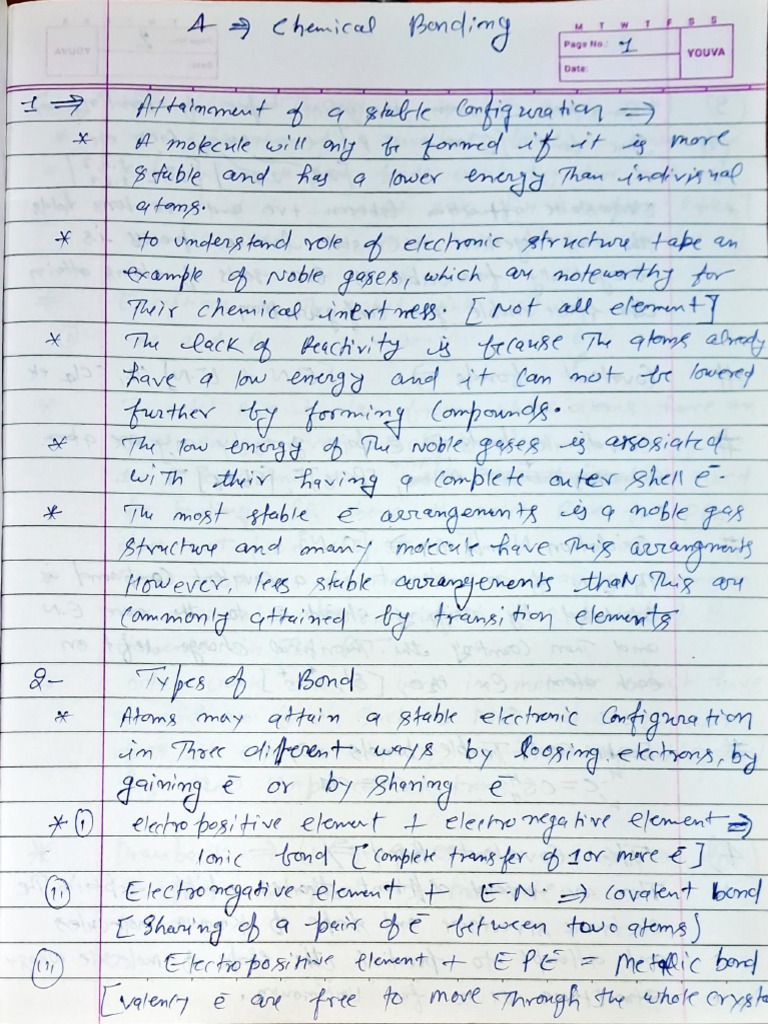 A ⇒ Chemical Bonding
M T W T F S S
Page No. 1
YOUVA
Date:
1 ⇒ Attainment of a stable Configuration ⇒
* A molecule will only be formed if it is more
stable and has a lower energy than indivisual
atoms.
* to understand role of electronic structure take an
example of Noble gases, which are noteworthy for
Their chemical inertness. [Not all element]
* The lack of Reactivity is because The atoms already
have a low energy and it can not be lowered
further by forming Compounds.
* The low energy of The Noble gases is assosiated
with their having a complete outer shell ē.
* The most stable ē arrangements is a noble gas
structure and many molecule have This arrangments
However, less stable arrangements thaN This are
Commonly attained by transition elements
2- Types of Bond
* Atoms may attain a stable electronic Configuration
in Three different ways by loosing electrons, by
gaining ē or by sharing ē
* (i) electropositive element + electronegative element ⇒
Ionic bond [complete transfer of 1 or more ē]
(ii) Electronegative element + E.N. ⇒ covalent bond
[Sharing of a pair of ē between two atoms]
(iii) Electropositive element + EPE = Metallic bond
[valency ē are free to move Through the whole